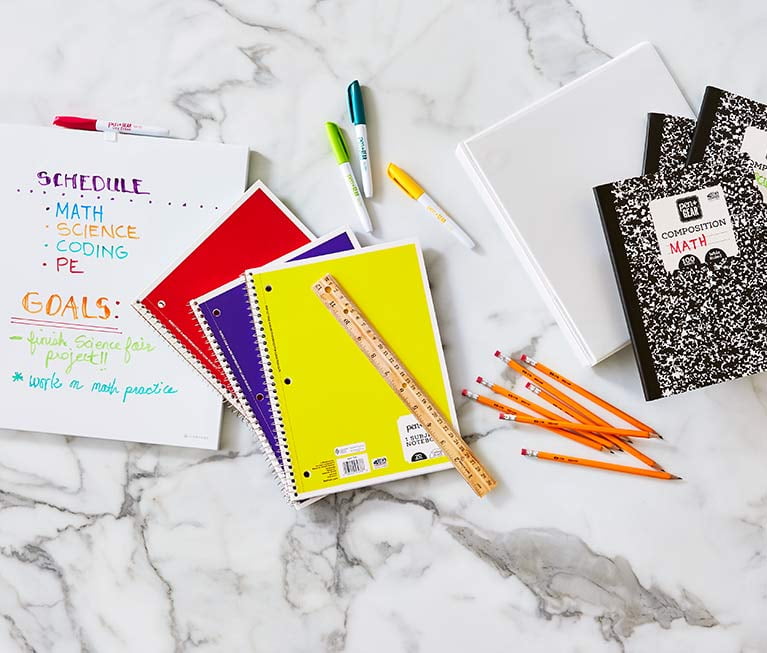 SCHEDULE
· MATH
· SCIENCE
· CODING
· PE
GOALS:
- finish Science fair
project!!
* work on math practice
pen+gear
1 SUBJECT
NOTEBOOK
PEN+GEAR
COMPOSITION
MATH
100